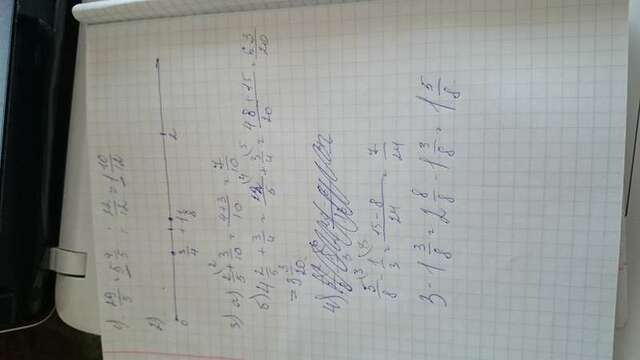 1) 29/5 = 5 4/5 ; 22/12 = 1 10/12
2)
0 3/4 1 1/8 2
3) а) 2/5 + 3/10 = 4+3/10 = 7/10
б) 4 2/5 + 3/4 = 22/5 + 3/4 = 48+15/20 = 63/20
= 3 3/20
4)
5/8 - 1/3 = 15-8/24 = 7/24
3 - 1 3/8 = 2 8/8 - 1 3/8 = 1 5/8